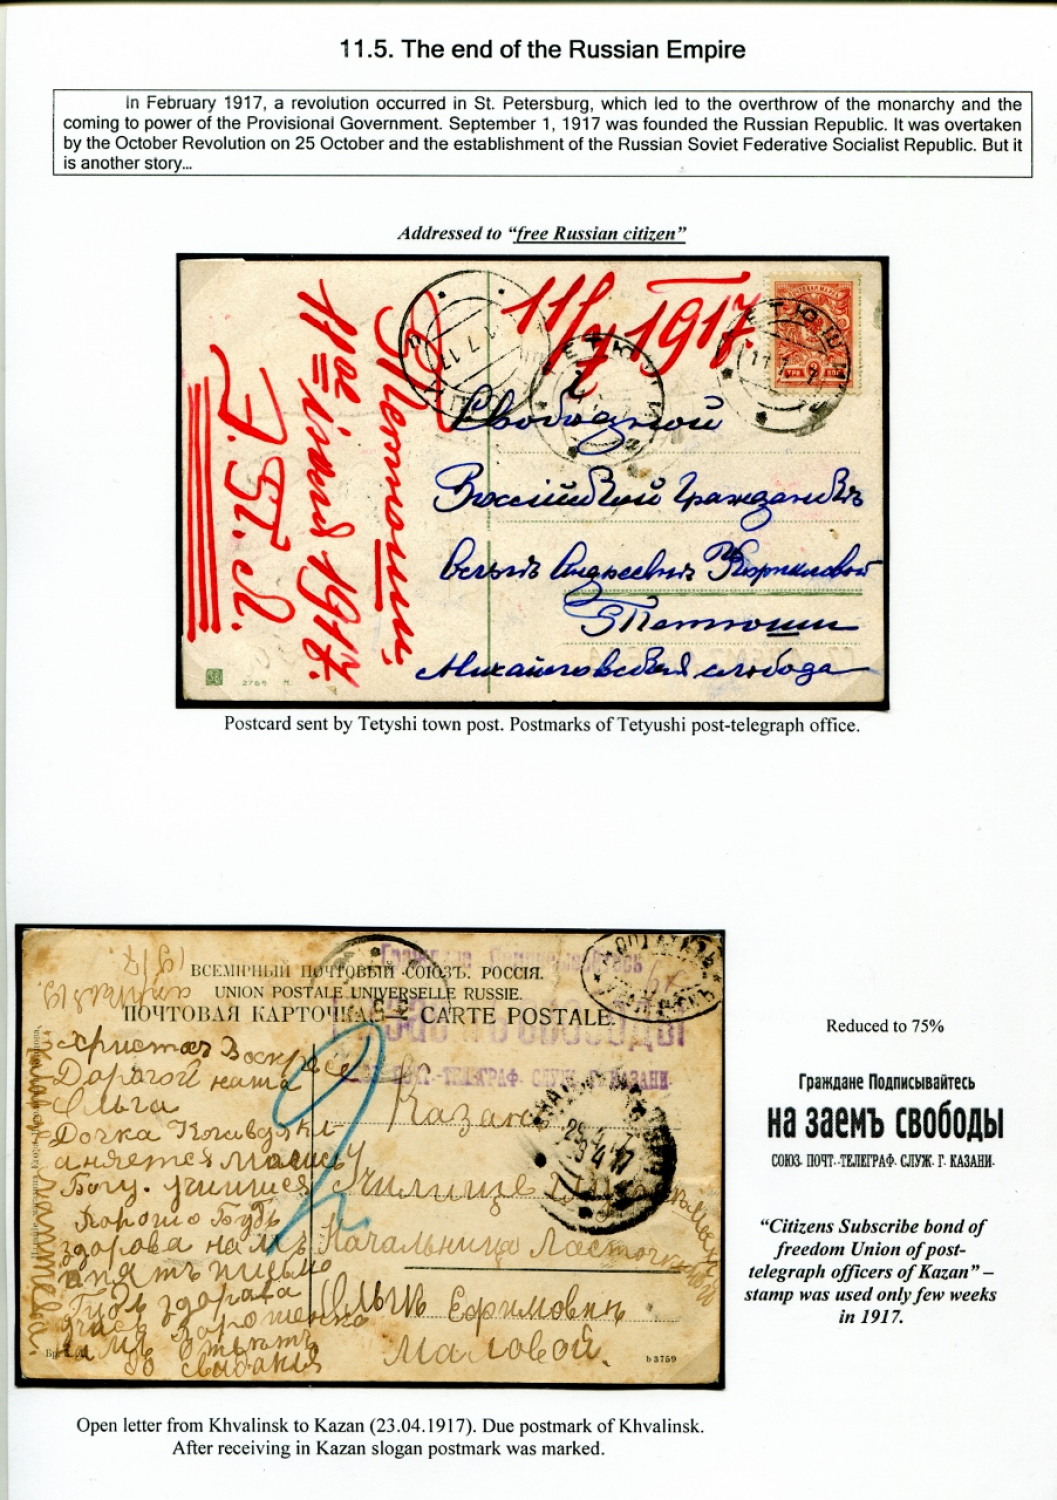 11.5. The end of the Russian Empire
In February 1917, a revolution occurred in St. Petersburg, which led to the overthrow of the monarchy and the
coming to power of the Provisional Government. September 1, 1917 was founded the Russian Republic. It was overtaken
by the October Revolution on 25 October and the establishment of the Russian Soviet Federative Socialist Republic. But it
is another story...
Addressed to “free Russian citizen”
11/7 1917.
Тетюши,
11ое іюля 1917.
Свободной
Россійской Гражданкѣ
Андреевнѣ Корниловой
Г Тетюши
Михайловская слобода
2769
Postcard sent by Tetyshi town post. Postmarks of Tetyushi post-telegraph office.
ВСЕМІРНЫЙ ПОЧТОВЫЙ СОЮЗЪ. РОССІЯ.
UNION POSTALE UNIVERSELLE RUSSIE.
ПОЧТОВАЯ КАРТОЧКА — CARTE POSTALE.
Христос Воскресе
Дорогой наша
Ольга
Дочка
Богу. учишся
Хорошо Будь
здорова
письмо
Будь здорова
до свидания
Казань
Училище
Начальница
Ольгѣ Ефимовнѣ
Маловой.
b 3759
Reduced to 75%
Граждане Подписывайтесь
на заемъ свободы
СОЮЗ. ПОЧТ.-ТЕЛЕГРАФ. СЛУЖ. Г. КАЗАНИ.
“Citizens Subscribe bond of
freedom Union of post-
telegraph officers of Kazan” –
stamp was used only few weeks
in 1917.
Open letter from Khvalinsk to Kazan (23.04.1917). Due postmark of Khvalinsk.
After receiving in Kazan slogan postmark was marked.